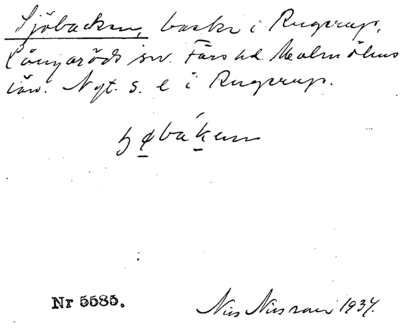 Sjöbacken, backe i Rugerup,
Långaröds sn. Färs hd. Malmöhus
län. Nytt. s. e i Rugerup.
ɧøbákən
Nr 5585.
Nils Nilsson 1934.